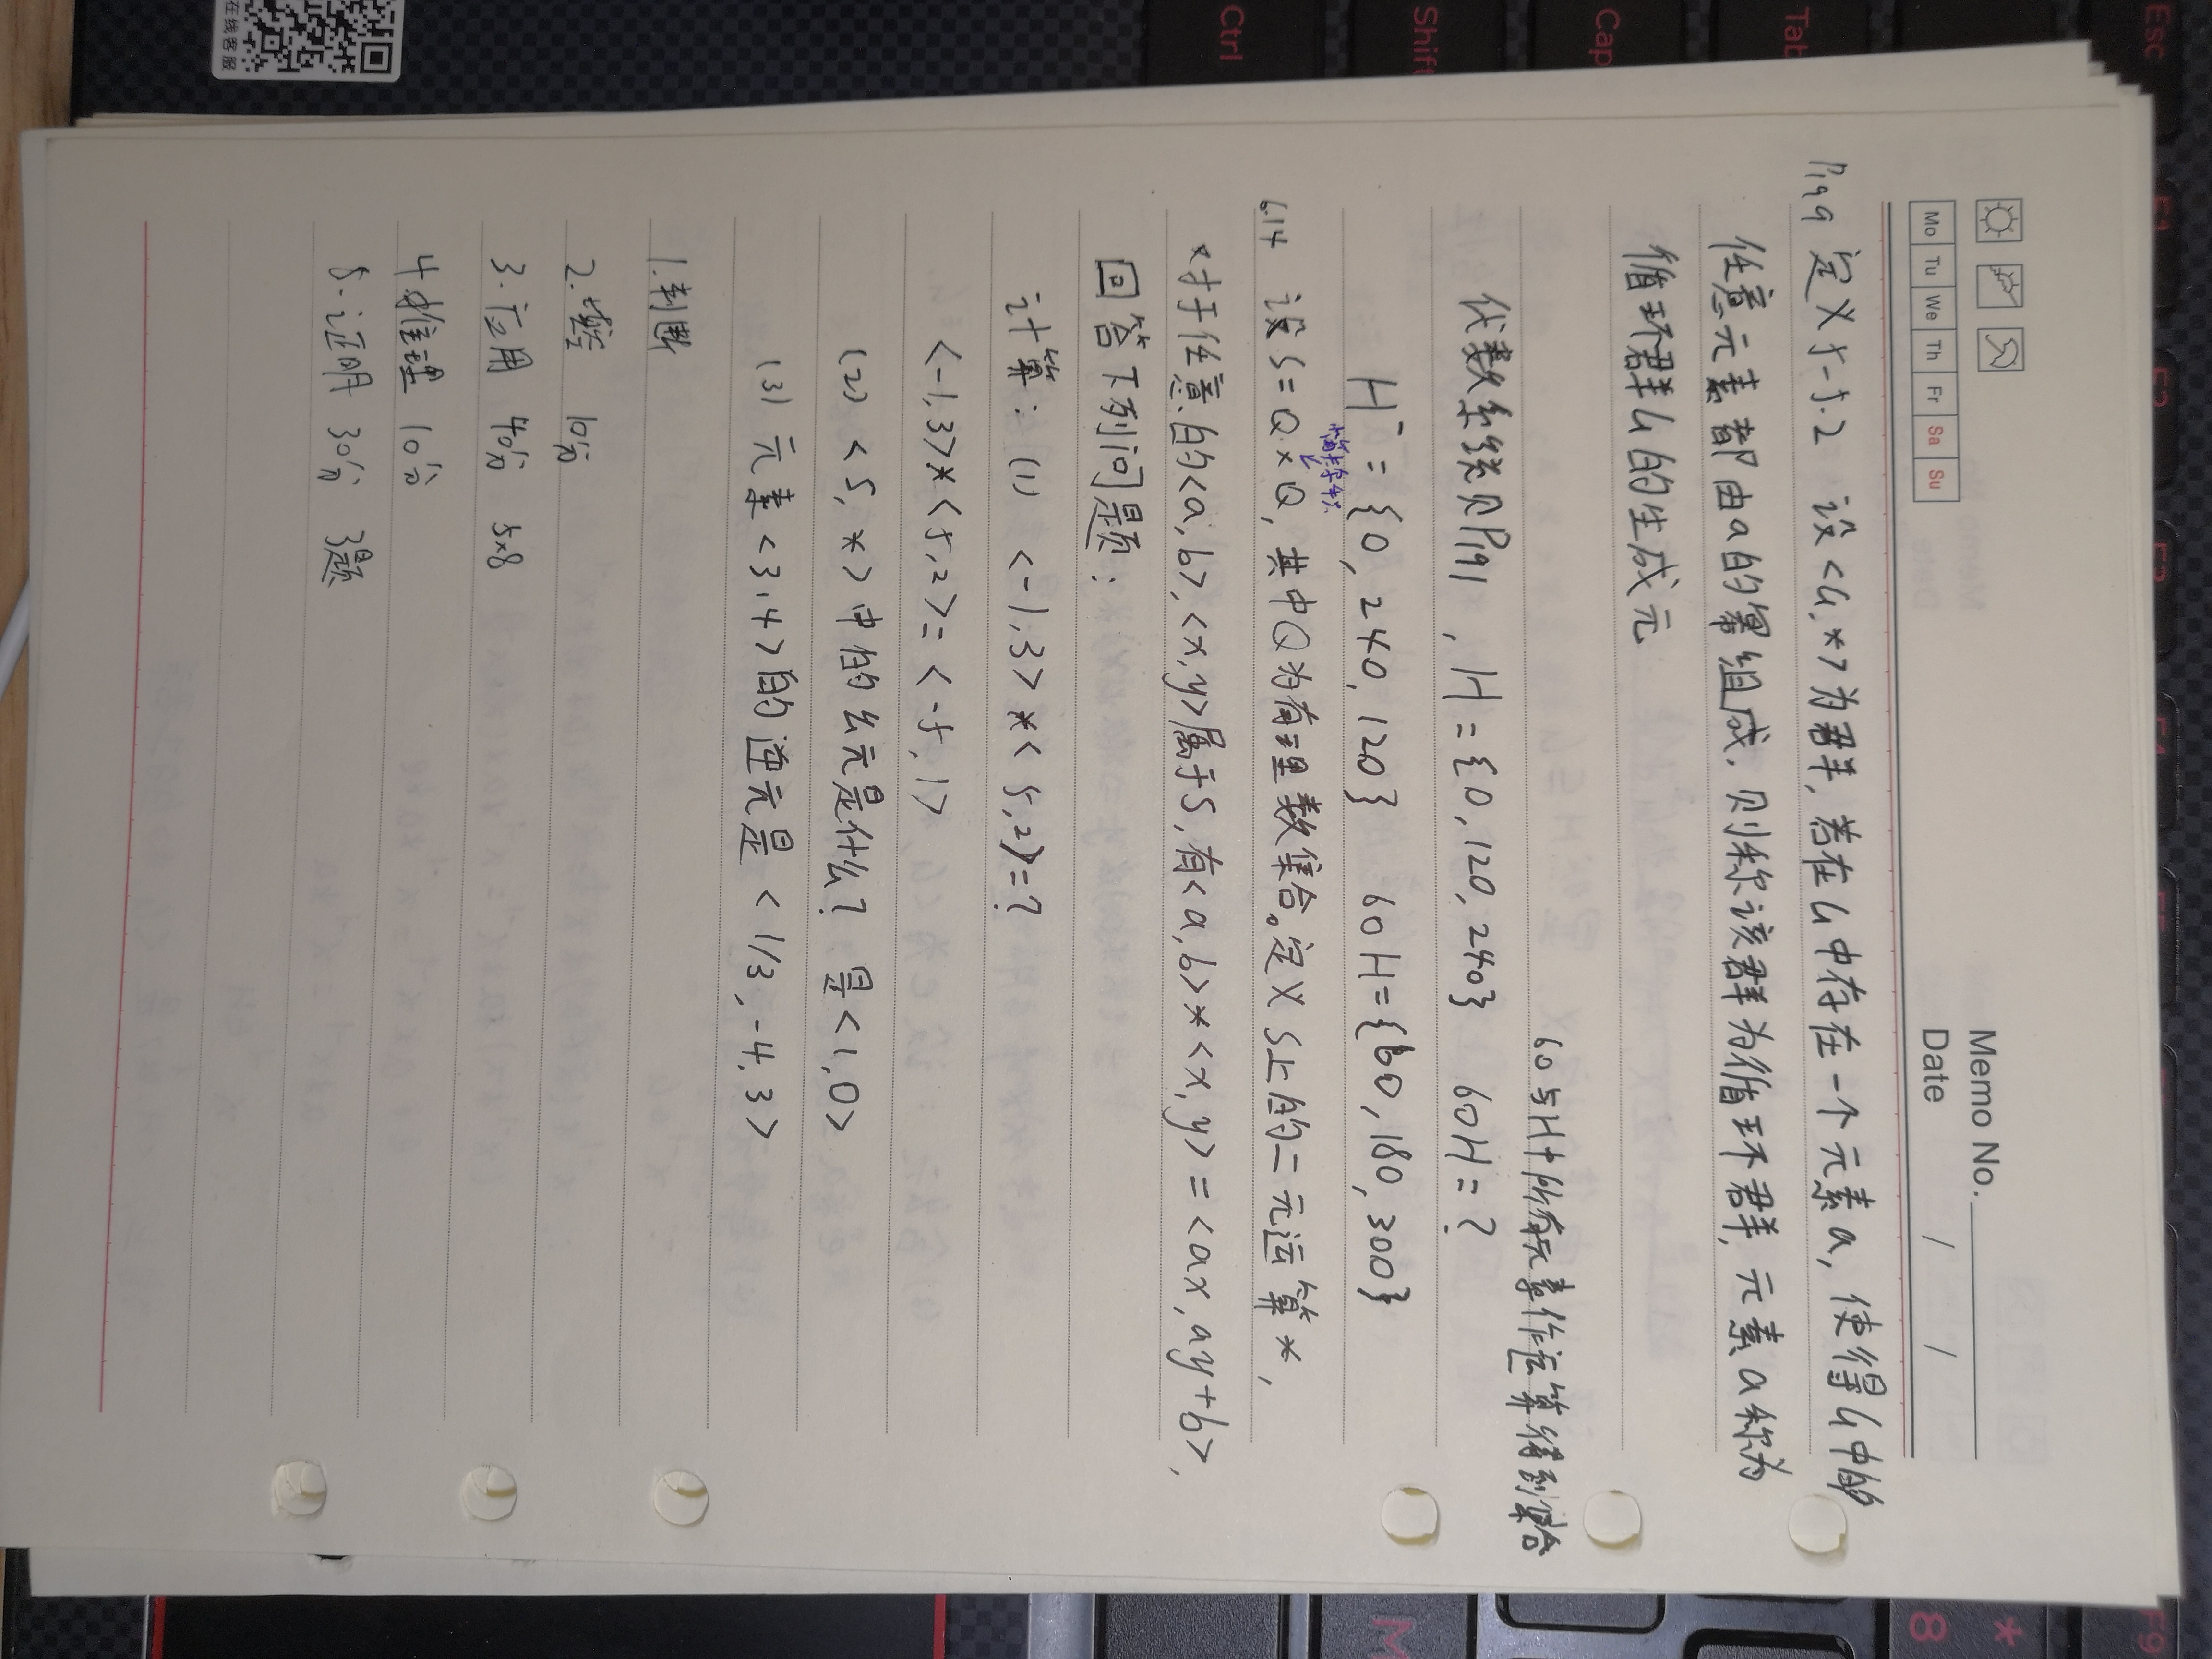 Esc F1 F2 F3 F4 F5 F9
Tab
Cap
Shift
Ctrl
*
8
M
Memo No.
Date / /
Mo Tu We Th Fr Sa Su
P199 定义5-5.2 设<G,*>为群,若在G中存在一个元素a,使得G中的
任意元素都由a的幂组成,则称该群为循环群,元素a称为
循环群G的生成元
60与H中所有元素作运算得到集合
代数系统见P191 , H={0,120,240} 60H=?
H⁻={0,240,120} 60H={60,180,300}
笛卡尔
6.14 设S=Q×Q,其中Q为有理数集合。定义S上的二元运算*,
对于任意的<a,b>,<x,y>属于S,有<a,b>*<x,y>=<ax,ay+b>,
回答下列问题:
计算: (1) <-1,3>*<5,2>=?
<-1,3>*<5,2>=<-5,1>
(2) <S,*>中的幺元是什么? 是<1,0>
(3) 元素<3,4>的逆元是<1/3,-4,3>
1.判断
2.填空 10分
3.应用 40分 5×8
4.推理 10分
5.证明 30分 3题
在线客服